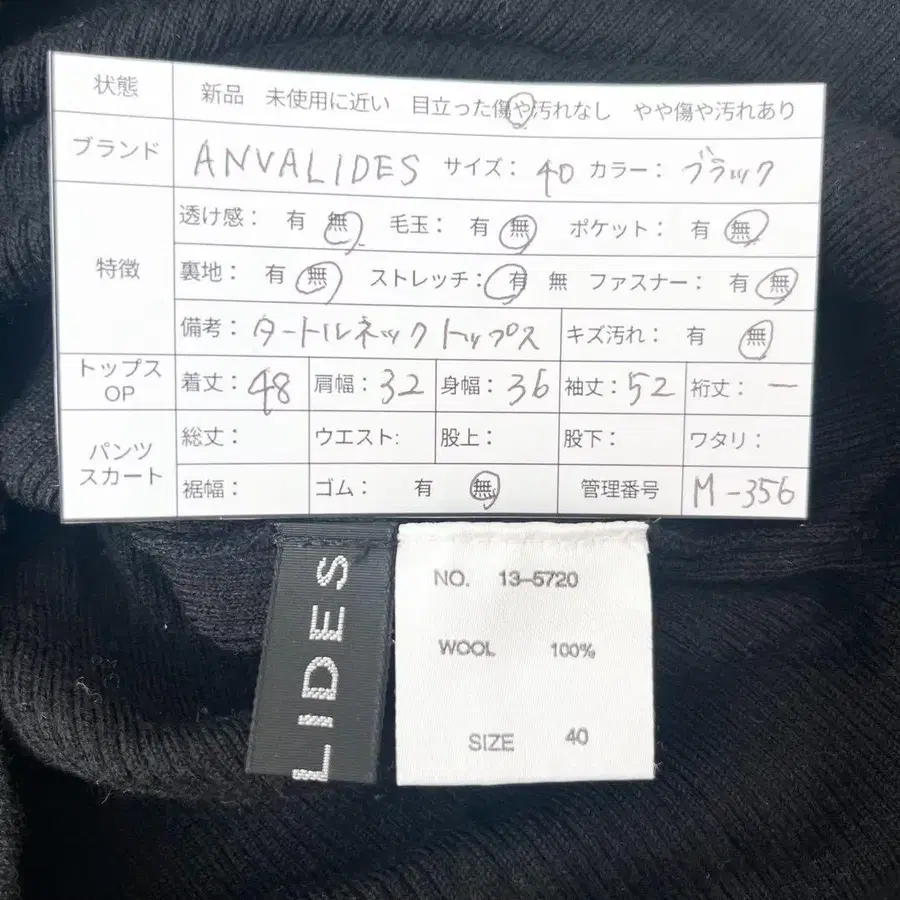 状態 新品 未使用に近い 目立った傷や汚れなし やや傷や汚れあり
ブランド ANVALIDES サイズ: 40 カラー: ブラック
特徴
透け感: 有 無 毛玉: 有 無 ポケット: 有 無
裏地: 有 無 ストレッチ: 有 無 ファスナー: 有 無
備考: タートルネックトップス キズ汚れ: 有 無
トップス
OP
着丈: 48 肩幅: 32 身幅: 36 袖丈: 52 裄丈: ー
パンツ
スカート
総丈: ウエスト: 股上: 股下: ワタリ:
裾幅: ゴム: 有 無 管理番号 M-356
LIDES
NO. 13-5720
WOOL 100%
SIZE 40